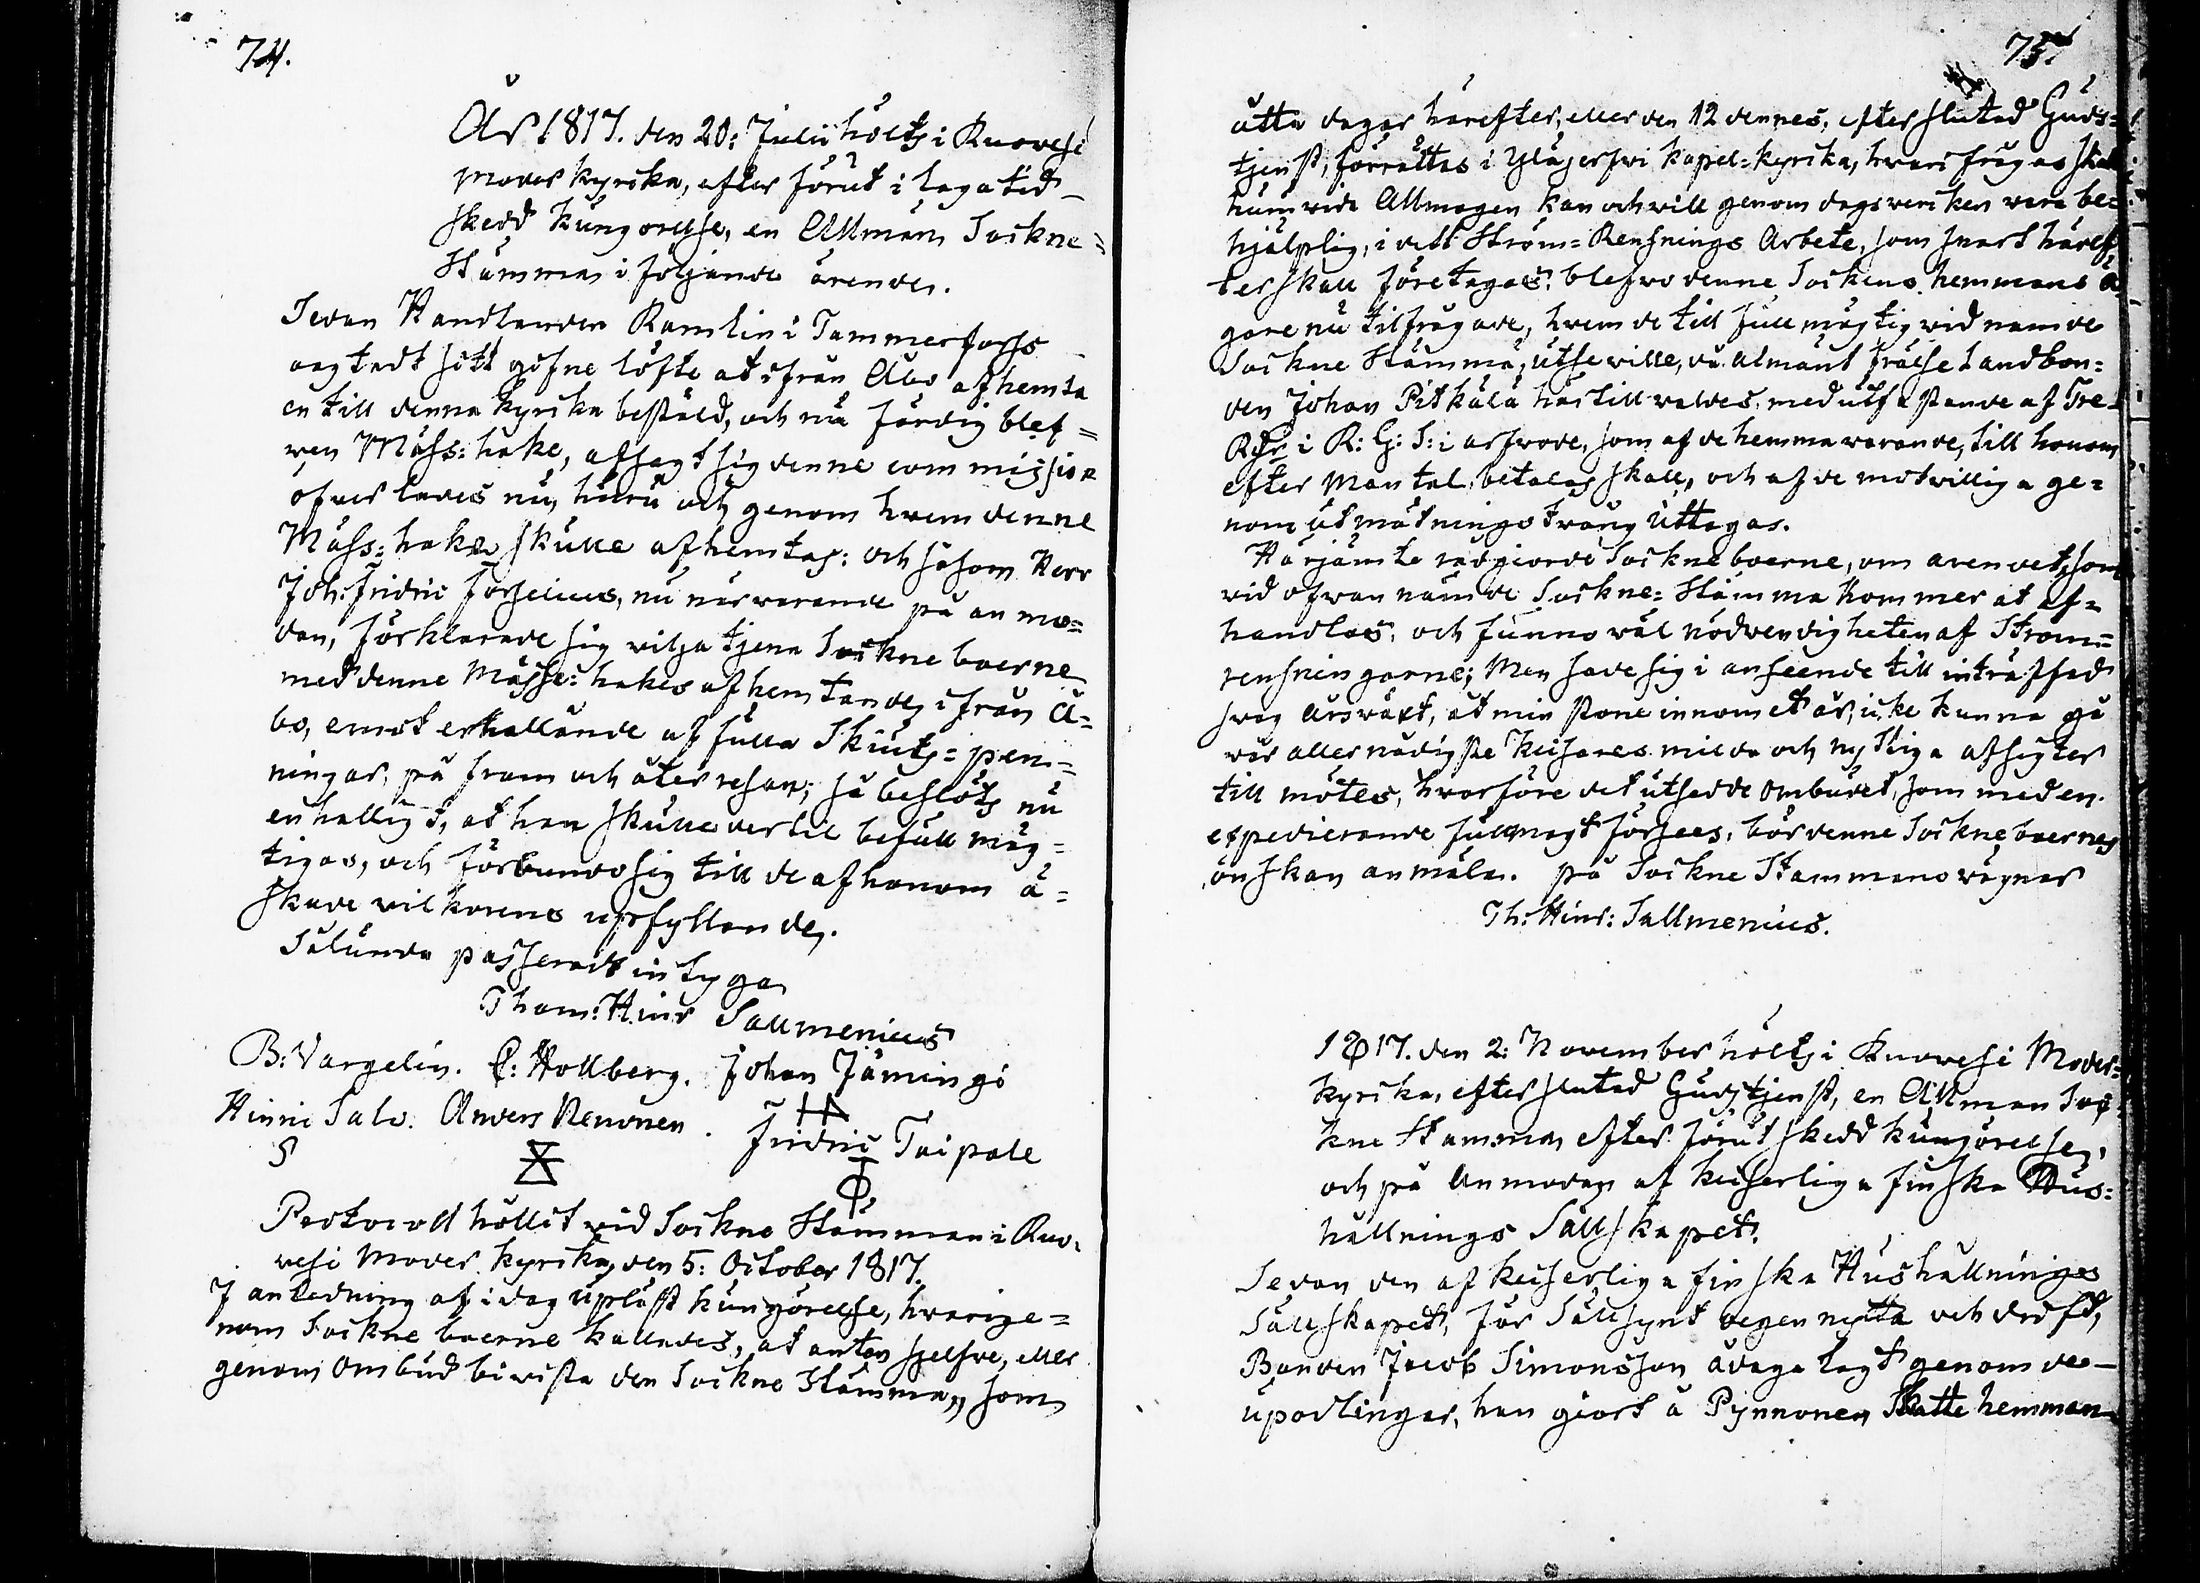 74.
År 1817. den 20: Julii hölts i Ruovesi
Moder kyrka, efter förut i laga tid
skedd kungörelse, en Allmän Sockne=
Stämma i följande ärende.
Sedan Handlanden Ramlin i Tammerfors
angående sitt gifne löfte at ifrån Åbo afhemta
en till denna kyrka bestäld, och nu färdig blef=
wen Mäss=hake, afsagt sig denne commission
öfver lades nu, huru och genom hwem denne
Mäss=hake skulle afhemtas: och såsom Herr
Joh: Fridric Forselius, nu närvarande på anmo=
dan, förklarade sig vilja tjena Sockneboerne
med denne Mässe=hakes afhemtande ifrån Å=
bo, emot erhållande af fulla Skiuts=pen=
ningar, på fram och åter resan; så beslöts nu
enhälligt, at han skulle dertil befullmäg=
tigas, och förbundo sig till de af honom ä=
skade vilkorens upfyllande.
Sålunda passeradt intyga
Thom: Hinr Sallmenius
B: Vargelin. E: Hollberg. Johan Jäminge
Hinric Salo. Anders Nenonen. Fridric Taipale
Protocoll hållit wid Sockne Stämman i Ruo=
vesi Moder kyrka, den 5: October 1817.
I anledning af i dag upläst kungörelse, hwarige=
nom Sockneboerne kallades, at antingen sjelfve, eller
genom Ombud bivista den Sockne Stämma, som
75.
åtta dagar härefter, eller den 12 dennes, efter slutad Guds=
tjenst, förrättas i Ylöjerfvi kapel=kyrka, hvari frågas skall
huruvida Allmogen kan och will genom dagsverken vara be=
hjälplig, i det Ström=Rensnings Arbete, som snart häref=
ter skall företagas: blefvo denne Sockens hemmans å=
gare nu tilfrågade, hvem de till fullmägtig vid nämde
Sockne Stämma, utse wille, då almänt frälse Landbon=
den Johan Pitkälä här till valdes, med utfästande af Tre
Rdr i R: G: S: i arfvode, som af de hemma varande, till honom
efter Mantal, betalas skall, och af de motvilliga ge=
nom utmätnings tvång uttagas.
Härjämte rådgiorde Sockneboerne, om ärendet, som
vid ofvan nämde Sockne=Stämma kommer at af=
handlas: och funno väl nödvendigheten af Ström=
rensningarne; Men sade sig i anseende till inträffad
svag årsväxt, åt minstone innom et år, icke kunna gå
vår allernådigste Keisares milda och nyttiga afsigter
till mötes, hvarföre det utsedde Ombudet, som med en
expedierande fullmagt förses, bör denne Sockneboernes
önskan anmäla. på Sockne Stämmans vägnar
Th: Hinr: Sallmenius.
1817. den 2: November hölts i Ruovesi Moder=
kyrka, efter slutad Gudstjenst, en Allmän Soc=
kne Stamma, efter förut skedd kungörelse,
och på Anmodan af Keiserliga finska Hus=
hållnings Sällskapet.
Sedan den af Keiserliga finska Hushållnings
Sällskapet, för Sällsynt egen nytta och drift,
Bonden Jacob Simonsson ådaga lagt genom de
upodlingar, han giort å Pynnönen Skatte hemman